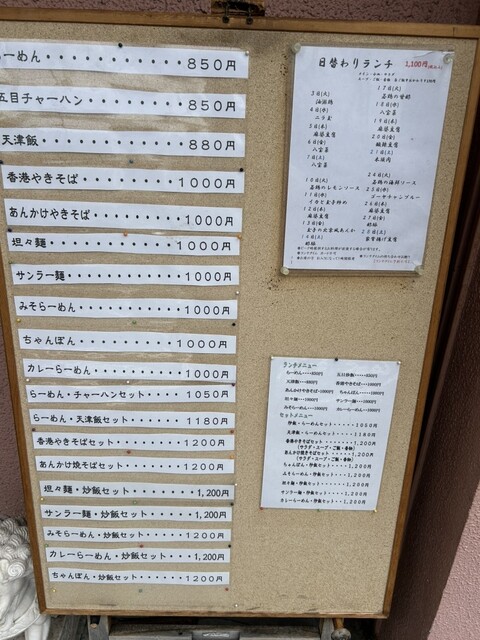 らーめん・・・・・・・・・・850円
五目チャーハン・・・・・・・・850円
天津飯・・・・・・・・・・・880円
香港やきそば・・・・・・・・・1000円
あんかけやきそば・・・・・・・1000円
坦々麺・・・・・・・・・・・1000円
サンラー麺・・・・・・・・・・1000円
みそらーめん・・・・・・・・・1000円
ちゃんぽん・・・・・・・・・・1000円
カレーらーめん・・・・・・・・1000円
らーめん・チャーハンセット・・・・1050円
らーめん・天津飯セット・・・・・1180円
香港やきそばセット・・・・・・・1200円
あんかけ焼そばセット・・・・・・1200円
坦々麺・炒飯セット・・・・・・1,200円
サンラー麺・炒飯セット・・・・・1,200円
みそらーめん・炒飯セット・・・・1200円
カレーらーめん・炒飯セット・・・1,200円
ちゃんぽん・炒飯セット・・・・・・1200円
日替わりランチ 1,100円
3日(火)
油淋鶏
4日(水)
ニラ玉
5日(木)
麻婆豆腐
6日(金)
八宝菜
7日(土)
八宝菜
10日(火)
若鶏のレモンソース
11日(水)
12日(木)
麻婆豆腐
13日(金)
14日(土)
17日(火)
18日(水)
八宝菜
19日(木)
麻婆豆腐
20日(金)
21日(土)
24日(火)
若鶏の海鮮ソース
25日(水)
ゴーヤチャンプルー
26日(木)
麻婆豆腐
27日(金)
28日(土)
家常揚げ豆腐
ランチメニュー
らーめん・・・・850円 五目炒飯・・・・850円
天津飯・・・880円 香港やきそば・・1000円
あんかけやきそば・・1000円 ちゃんぽん・・・・1000円
坦々麺・・・1000円 サンラー麺・・・1000円
みそらーめん・・・1000円 カレーらーめん・・1000円
セットメニュー
炒飯・らーめんセット・・・・1050円
天津飯・らーめんセット・・・1180円
香港やきそばセット・・・・・1,200円
(サラダ・スープ・ご飯・香物)
あんかけ焼きそばセット・・・・1,200円
(サラダ・スープ・ご飯・香物)
ちゃんぽん・炒飯セット・・・・1,200円
みそらーめん・炒飯セット・・・1,200円
坦々麺・炒飯セット・・・・・1,200円
サンラー麺・炒飯セット・・・1,200円
カレーらーめん・炒飯セット・・1,200円